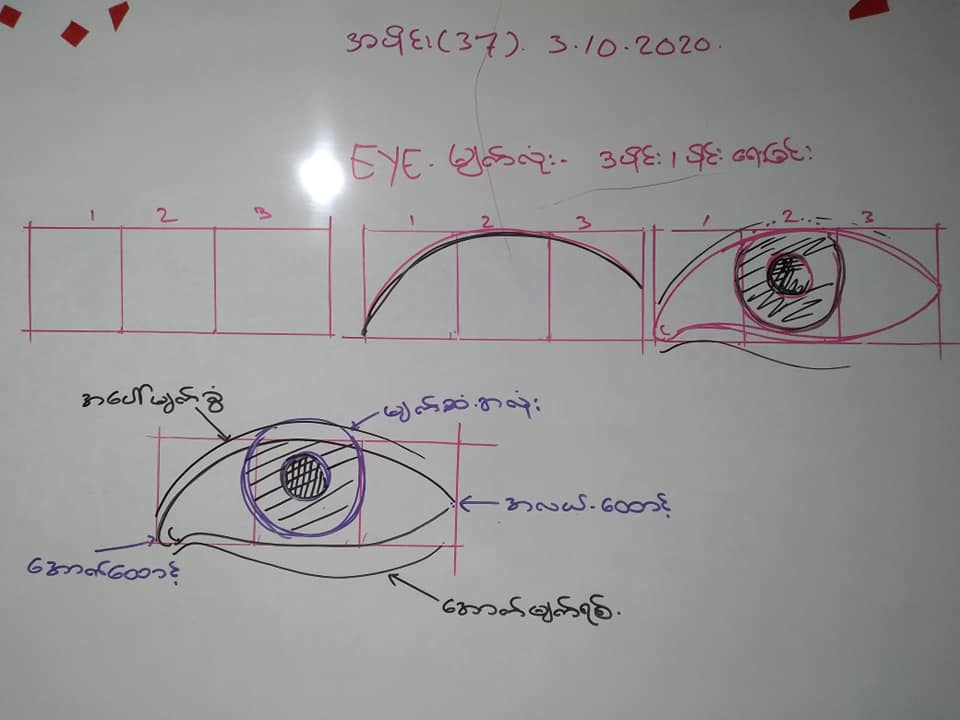 အပိုင်း(37). 3.10.2020.
EYE. မျက်လုံး- ၃ပိုင်း ၊ ပိုင်း ရေးခြင်း
1 2 3
1 2 3
1 2 3
အပေါ်မျက်ခွံ
မျက်ဆံအလုံး
အလယ်-ထောင့်
အောက်ထောင့်
အောက်မျက်ရစ်.